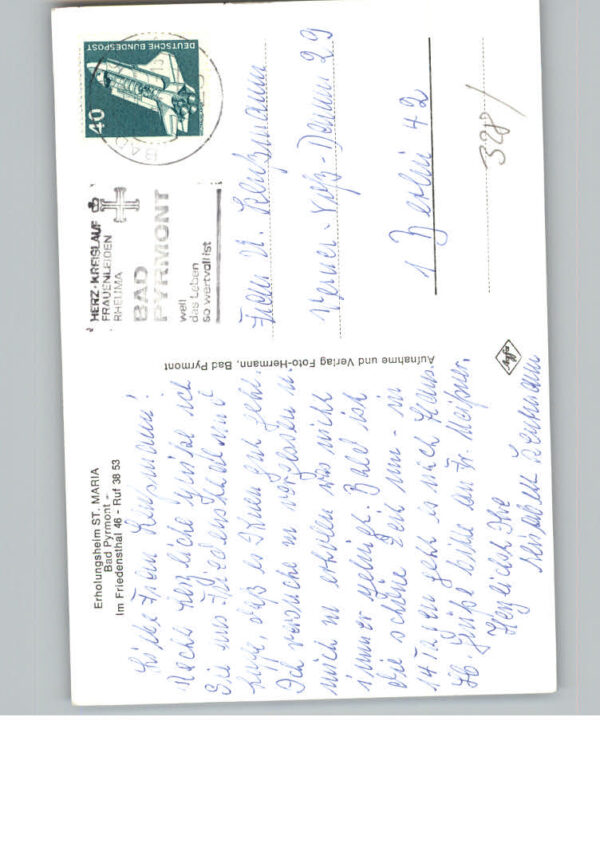 Erholungsheim ST. MARIA
- Bad Pyrmont -
Im Friedensthal 46 - Ruf 38 53
Liebe Frau
Recht herzliche Grüße ich
Sie aus Friedensthal und
hoffe, daß es Ihnen gut geht.
Ich versuche zu
mich zu erholen was nicht
immer gelingt. Bald ist
die schöne Zeit um - in
14 Tagen geht es nach Haus.
Grüße bitte an Fr.
Herzlichst Ihre
Aufnahme und Verlag Foto-Hermann, Bad Pyrmont
Agfa
HERZ·KREISLAUF
FRAUENLEIDEN
RHEUMA
BAD
PYRMONT
weil
das Leben
so wertvoll ist
DEUTSCHE BUNDESPOST
40
BAD
Frau
Werner-Voß-Damm 29
1 Berlin 42
328/